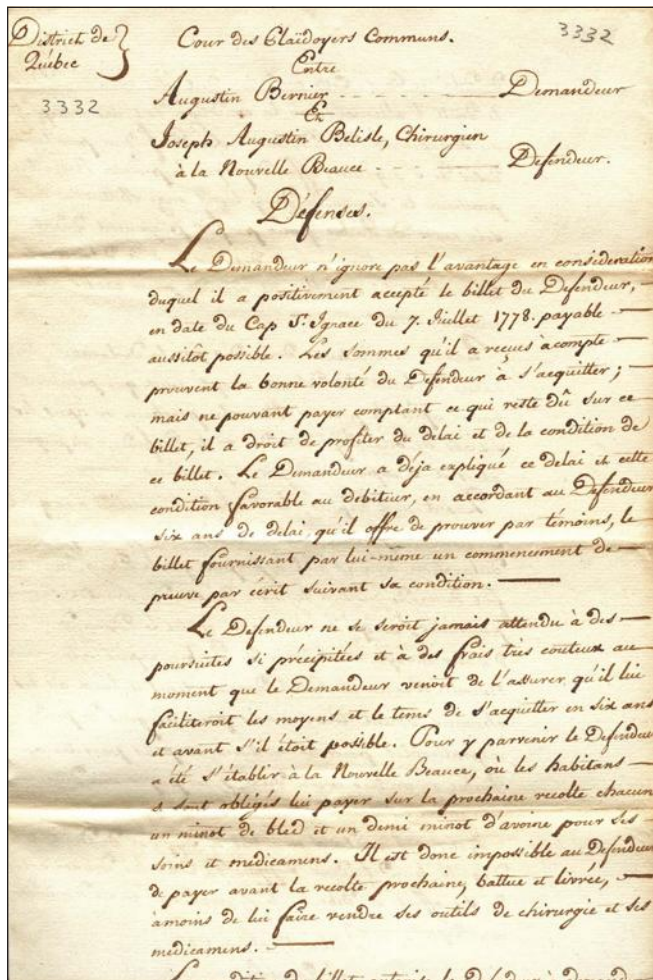 District de
Québec
Cour des Plaidoyers Communs.
3332
Entre
3332
Augustin Bernier Demandeur
Et
Joseph Augustin Belisle, Chirurgien
à la Nouvelle Beauce Defendeur.
Défenses.
Le Demandeur n'ignore pas l'avantage en consideration
duquel il a positivement accepté le billet du Defendeur,
en date du Cap St. Ignace du 7. Juillet 1778. payable
aussitôt possible. Les sommes qu'il a recues àcompte
prouvent la bonne volonté du Defendeur à s'acquitter;
mais ne pouvant payer comptant ce qui reste dû sur ce
billet, il a droit de profiter du delai et de la condition de
ce billet. Le Demandeur a déja expliqué ce delai et cette
condition favorable au debiteur, en accordant au Defendeur
six ans de delai, qu'il offre de prouver par témoins, le
billet fournissant par lui-même un commencement de
preuve par écrit suivant sa condition.
Le Defendeur ne se seroit jamais attendu à des
poursuites si précipitées et à des frais très couteux au
moment que le Demandeur venoit de l'assurer qu'il lui
faciliteroit les moyens et le tems de s'acquitter en six ans
et avant s'il étoit possible. Pour y parvenir le Defendeur
a été s'établir à la Nouvelle Beauce, où les habitans
se sont obligés lui payer sur la prochaine recolte chacun
un minot de bled et un demi minot d'avoine pour ses
soins et medicamens. Il est donc impossible au Defendeur
de payer avant la recolte prochaine, battue et livrée,
àmoins de lui faire vendre ses outils de chirurgie et ses
medicamens.